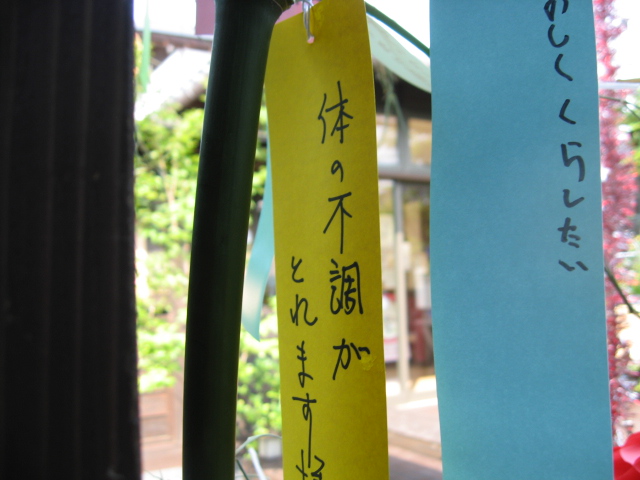 のしくくらしたい
体の不調が
とれます